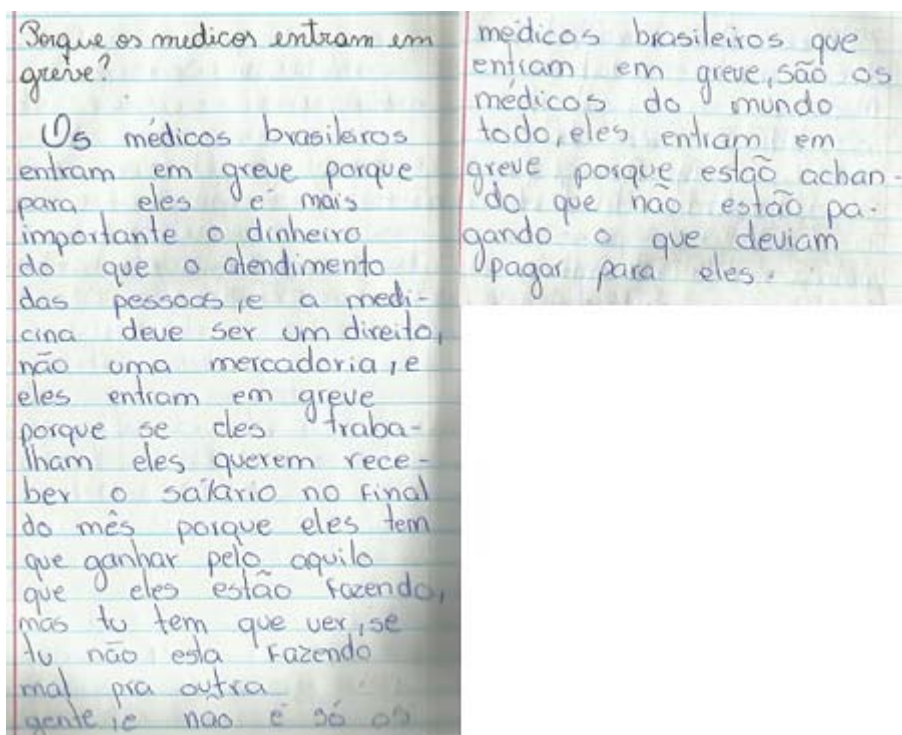 Porque os medicos entram em
greve?
Os médicos brasileiros
entram em greve porque
para eles é mais
importante o dinheiro
do que o atendimento
das pessoas, e a medi-
cina deve ser um direito,
não uma mercadoria, e
eles entram em greve
porque se eles traba-
lham eles querem rece-
ber o salário no final
do mês porque eles tem
que ganhar pelo aquilo
que eles estão fazendo,
mas tu tem que ver, se
tu não esta fazendo
mal pra outra
gente, e não é só os
médicos brasileiros que
entram em greve, são os
médicos do mundo
todo, eles entram em
greve porque estão achan-
do que não estão pa-
gando o que deviam
pagar para eles.